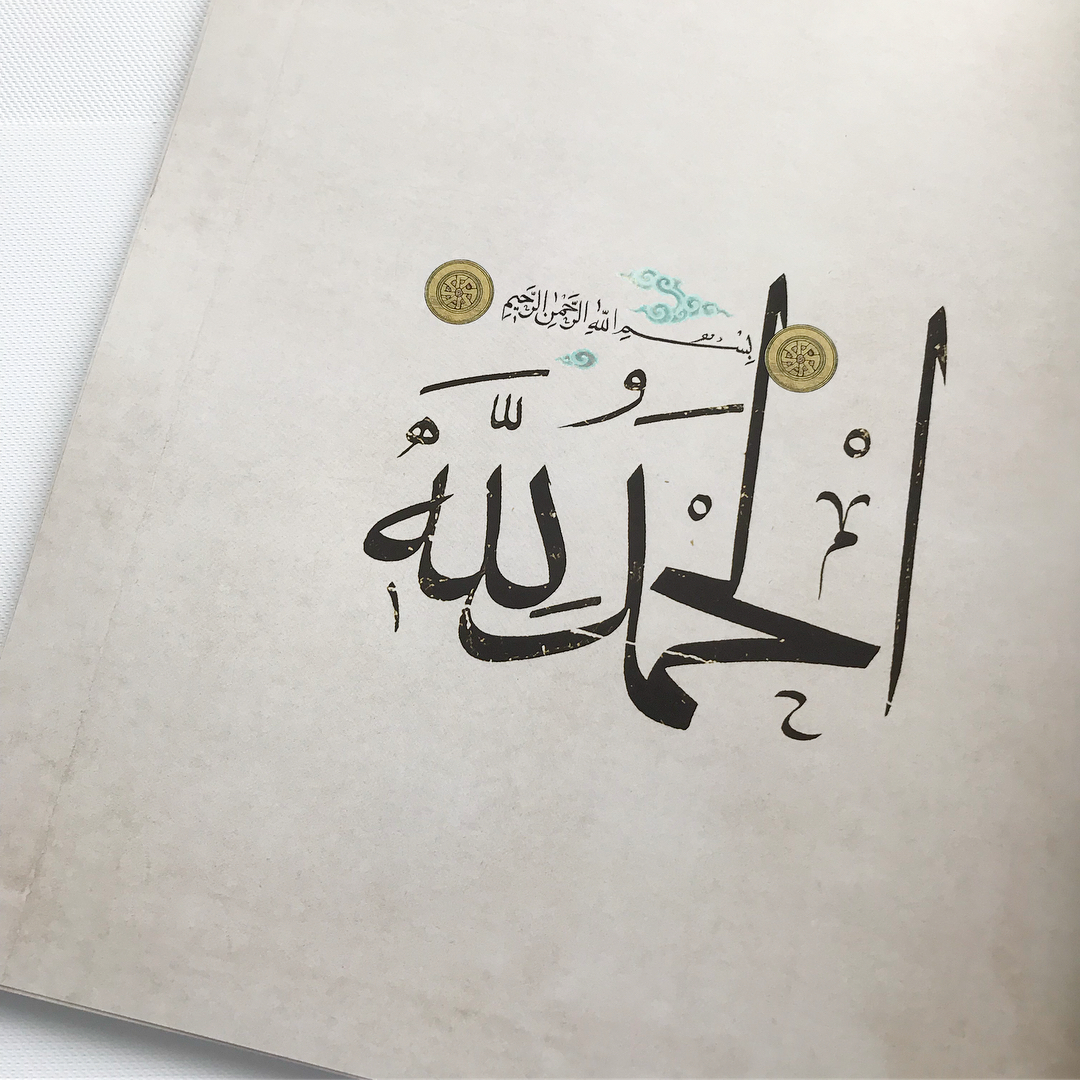 بِسْمِ اللّٰهِ الرَّحْمٰنِ الرَّحِيمِ
اَلْحَمْدُ لِلّٰهِ